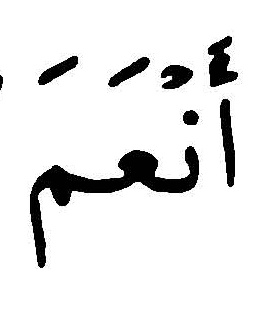 أَنْعَمَ